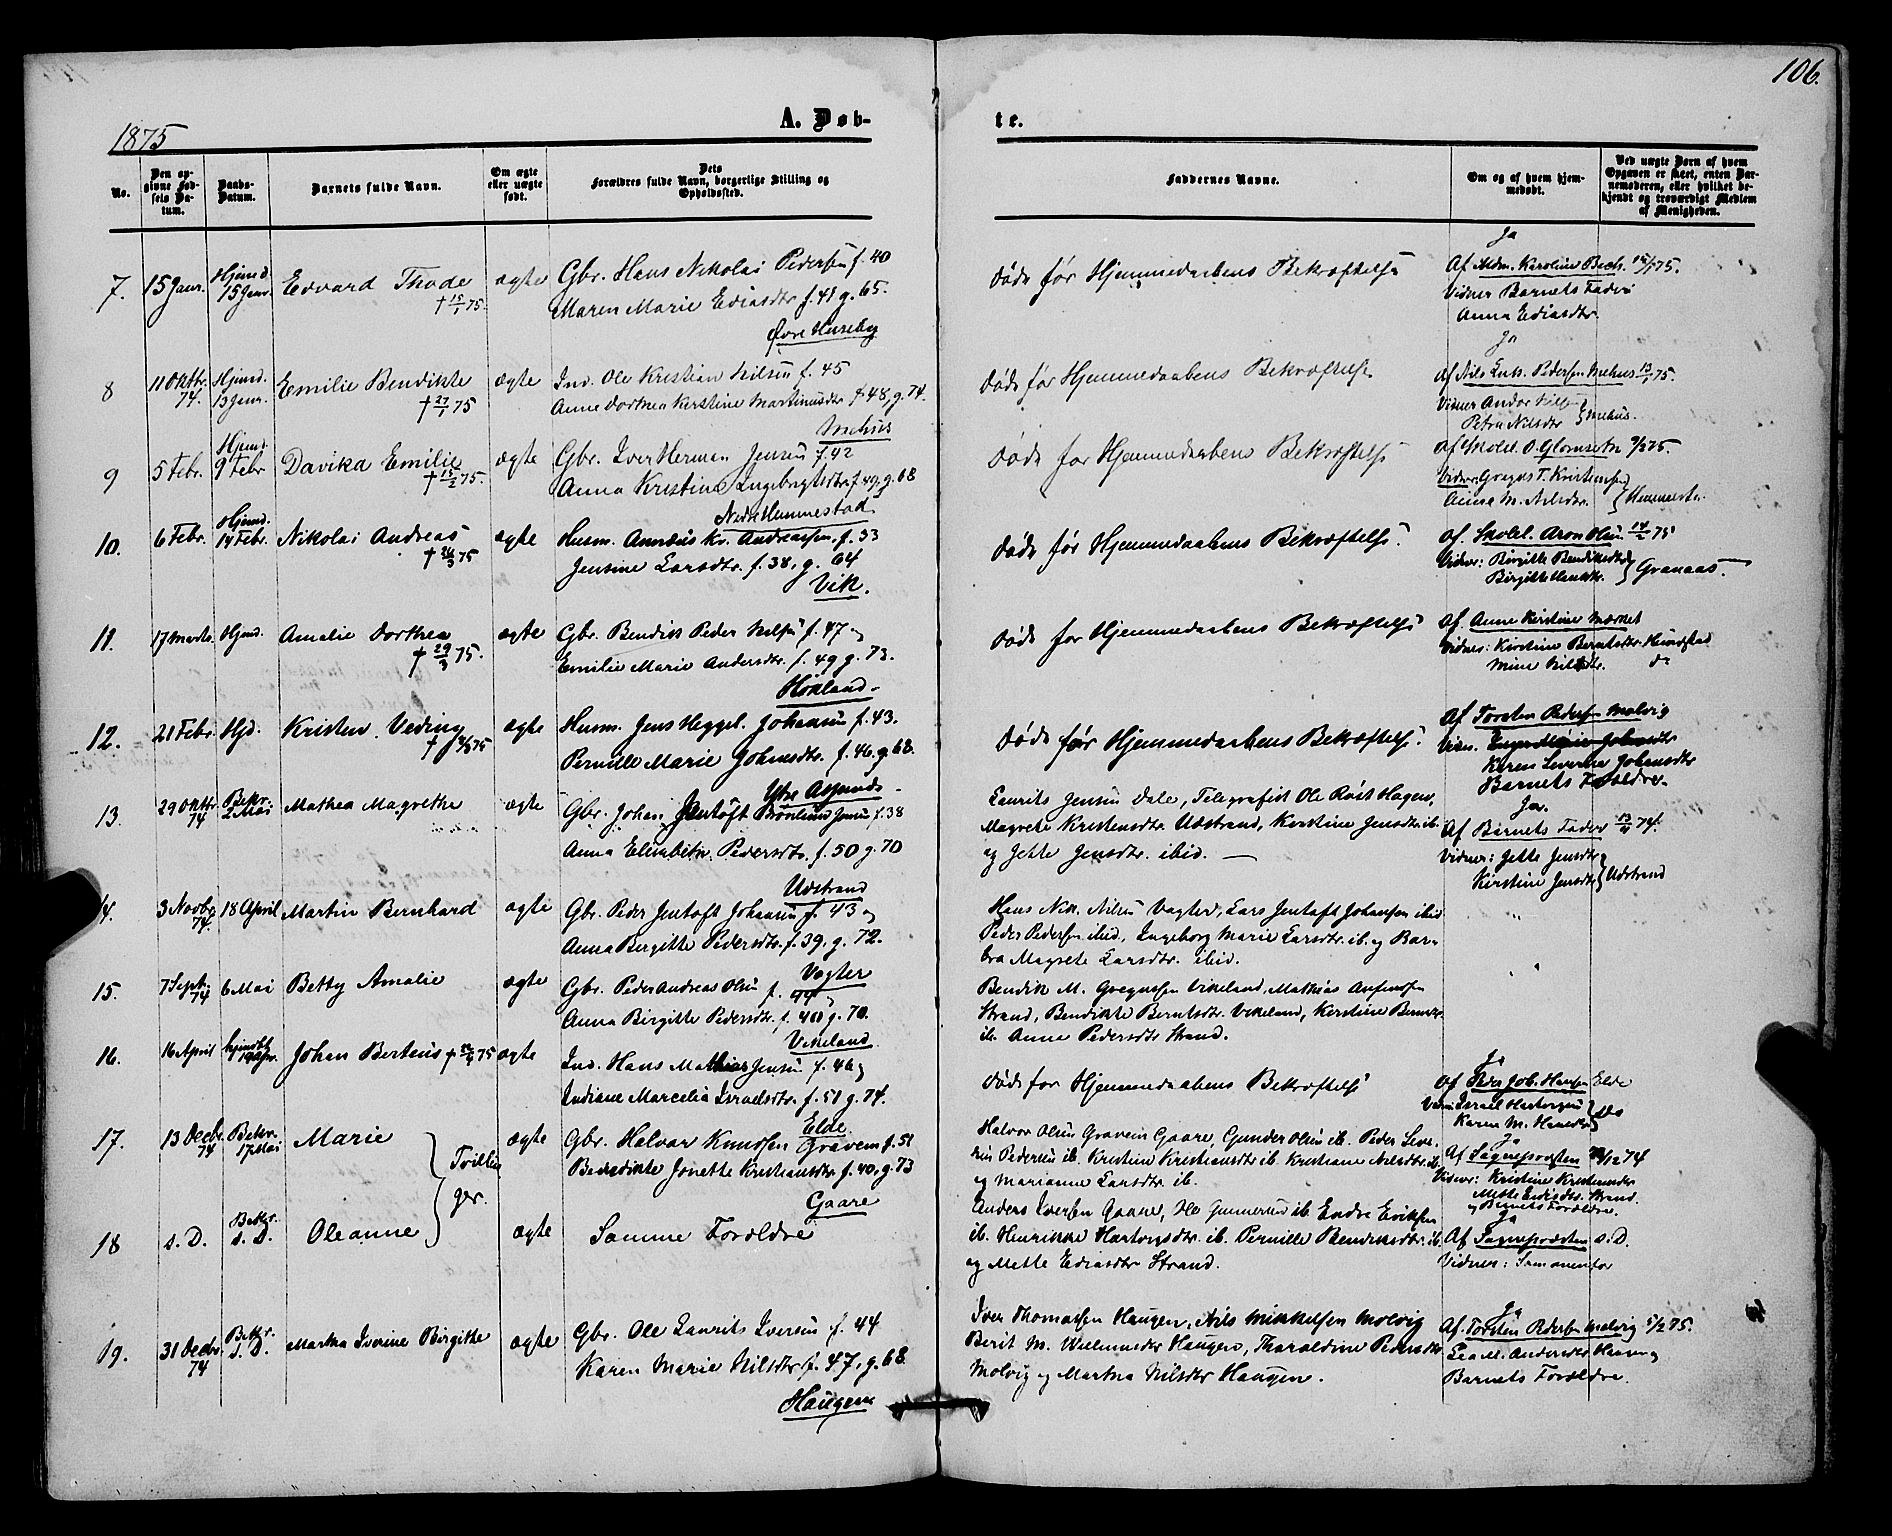 106.
1875
A. Døb-
te.
No.
Den op-
givne Fød-
sels Da-
tum.
Daabs-
Datum.
Barnets fulde Navn.
Om ægte
eller uægte
født.
Dets
Forældres fulde Navn, borgerlige Stilling og
Opholdssted.
Faddernes Navne.
Om og af hvem hjem-
medøbt.
Ved uægte Børn af hvem
Opgaven er skeet, enten Bar-
nemoderen, eller hvilket be-
kjendt og troværdigt Medlem
af Menigheden.
7. 15 Janr. Hjemd. 15 Janr. Edvard Thode ægte Gbr. Hans Nikolai Pedersen f. 40
† 15/1 75. Maren Marie Ediasdtr f. 41 g. 65.
Øvre Huseby
Døde før Hjemmedaabens Bekræftelse
Ja
Af Mdm. Karoline Bech. 15/1 75.
Vidner Barnets Fader
Anna Ediasdtr.
8 11 Oktbr. 74. Hjemd. 13 Janr. Emilie Bendikte ægte Ind. Ole Kristian Nilsen f. 45
† 27/1 75 Anne Dorthea Kerstine Martinusdtr f. 48, g. 74.
Mehus
Døde før Hjemmedaabens Bekræftelse
Ja
Af Nils Pedersen Mehus 13/1 75.
Petra Nilsdtr Mehus.
9 5 Febr. Hjemd. 9 Febr Davika Emilie ægte Gbr. Iver Herman Jensen f. 42
† 15/2 75. Anna Kristine Ingebrigtsdtr f. 49, g. 68
Nedre Hemmestad
Døde før Hjemmedaabens Bekræftelse
Af Skolel. O. 9/2 75.
Vidner: Gregus T. Kristensen
Anna M. Nilsdtr.
10. 6 Febr. Hjemd. 14 Febr. Nikolai Andreas ægte Husm. Annæus Kr. Andreassen, f. 33
† 26/3 75 Jensine Larsdtr. f. 38, g. 64
Vik.
Døde før Hjemmedaabens Bekræftelse.
Af. Skolel. Aron Olsen 14/2 75
Vidner: Birgitte Bendiksdtr
Birgitte Granaas.
11. 17 Marts. Hjemd. Amalie Dorthea ægte Gbr. Bendik Peder Nilsen f. 47 og
† 29/3 75. Emilie Marie Andersdtr. f. 49 g. 73.
Hokland
Døde før Hjemmedaabens Bekræftelse
Af Anne Kirstine
Vidner: Kirstine Berntsdtr Hemestad
Mine Nilsdtr. do
12. 21 Febr. Hjd. Kristen Veding ægte Husm. Jens Heggel. Johansen f. 43.
Pernille Marie Johnsdtr. f. 46. g. 68.
Ytre
Døde før Hjemmedaabens Bekræftelse.
Af Torsten Pedersen Molvig
Vidn. Inger Marie
Karen Severine Johansdtr
Barnets Forældre.
13. 29 Oktbr. 74 Bekr. 2 Mai Mathea Magrethe ægte Gbr. Johan Jentoft Brønlund Jensen f. 38
Anna Elisabeth Pedersdtr. f. 50 g. 70
Udstrand
Laurits Jensen Dale, Telegrafist Ole Røst Hagen,
Magrete Kristensdtr Udstrand, Kirstine Jensdtr ib.
og Jette Jensdtr. ibid.
Ja.
Af Barnets Fader 13/11 74.
Vidner: Jette Jensdtr
Kirstine Jensdtr Udstrand
14. 3 Novbr. 74. 18 April Martin Bernhard ægte Gbr. Peder Jentoft Johansen f. 43 og
Anna Birgitte Pedersdtr. f. 39, g. 72.
Vagter
Hans Nik. Nilsen Vagter, Lars Jentoft Johansen ibid
Peder Pedersen ibid, Ingeborg Marie Larsdtr. ib. og Bar-
bra Magrete Larsdtr. ibid.
15. 7 Septbr. 74 6 Mai Betty Amalie ægte Gbr. Peder Andreas Olsen f. 44
Anna Birgitte Pedersdtr. f. 40 g. 70.
Vikeland
Bendik M. Gregussen Vikeland, Mathias
Strand, Bendikte Berntsdtr. Vikeland, Kerstine
ib. Anne Pedersdtr Strand.
16. 16 April hjemdbt 19 Apr. Johan Berteus ægte Ind. Hans Mathias Jensen f. 46 og
Indiane Marcelia Israelsdtr. f. 51 g. 74.
Elde
Døde før Hjemmedaabens Bekræftelse
Ja
Af Peder Joh. Hansen Elde
Vidn: Israel Hartvigsen
Karen M. Hansdtr do
17. 13 Decbr. 74 Bekr. 17 Mai Marie Tvillin- ger. ægte Gbr. Halvar Knudsen Gravem f. 51
Benedikte Jonette Kristiansdtr. f. 40, g. 73
Gaare
Halvor Olsen Gravem Gaare, Gunder Olsen ib. Peder Seve-
rin Pedersen ib. Kristine Kristiansdtr ib. Kristiane Nilsdtr. ib.
og Marianne Larsdtr ib.
Ja
Af Sognepræsten 12 74
Vidner: Kristine Kristiansdtr
Mette Ediasdtr. Strand.
og Barnets Forældre.
18 s. D. Bekr. s. D. Oleanne ægte Samme Forældre
Anders Iversen Gaare, Ole Gunnersen ib. Endre Eriksen
ib. Henrikke Hartvigsdtr. ib. Pernille Bendiksdtr. ib.
og Mette Ediasdtr Strand.
Ja
Af Sognepræsten s. D.
Vidner: Som ovenfor
19. 31 Decbr. 74 Bekr. s. D. Martha Iverine Birgitte ægte Gbr. Ole Laurits Iversen f. 44
Karen Marie Nilsdtr f. 47, g. 68.
Haugen
Iver Thomassen Haugen, Nils Mikkelsen Molvig
Berit M. Willumsdtr Haugen, Tharaldine Pedersdtr
Molvig og Martha Nilsdtr Haugen.
Ja
Af Torsten Pedersen Molvig 5/2 75.
Lea M. Andersdtr Haugen og
Barnets Forældre.